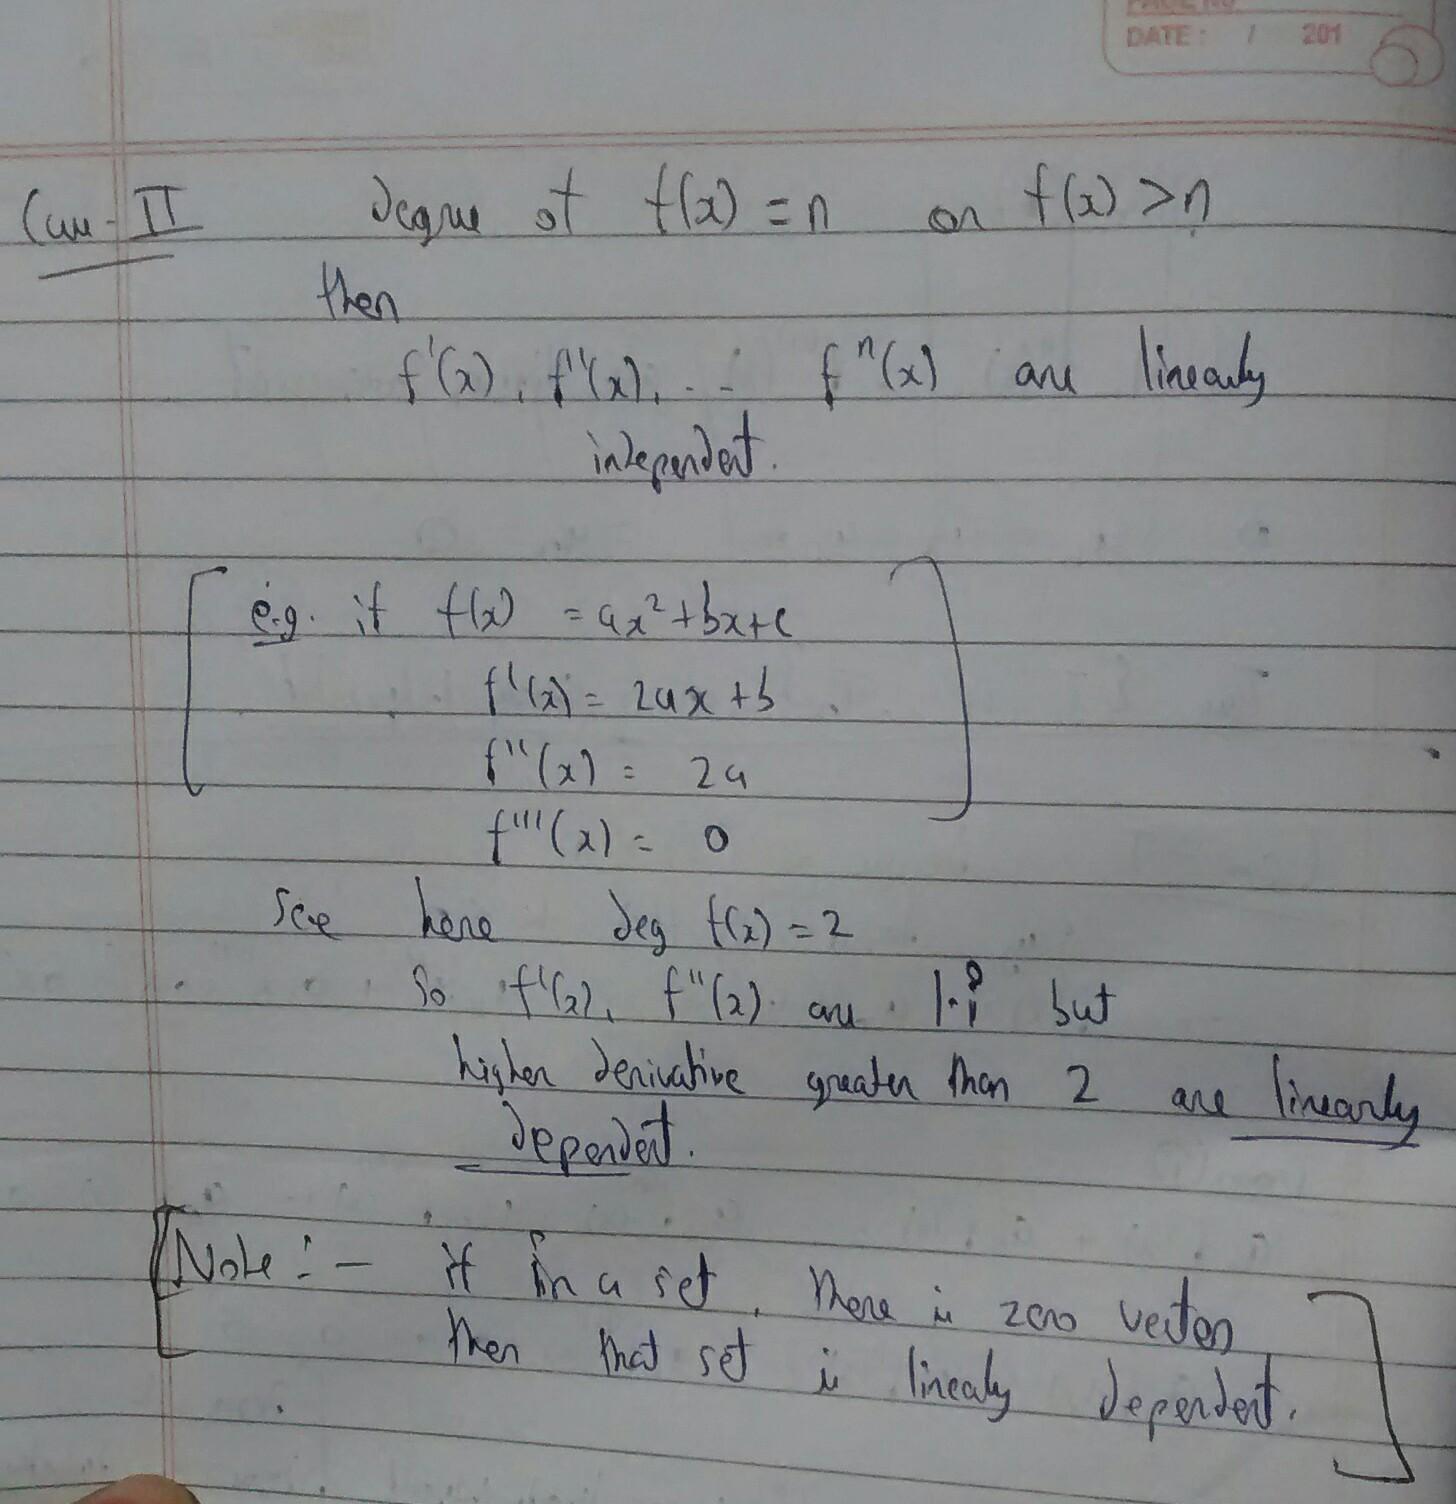 PAGE NO
DATE : / 201
Case-II degree of f(x) = n or f(x) > n
then
f'(x), f''(x), .. f^n(x) are linearly
independent.
e.g. if f(x) = ax²+bx+c
f'(x) = 2ax+b
f''(x) = 2a
f'''(x) = 0
See here deg f(x) = 2
So f'(x), f''(x) are l.i but
higher derivative greater than 2 are linearly
dependent.
Note :- if in a set, there is zero vector
then that set is linealy dependent.